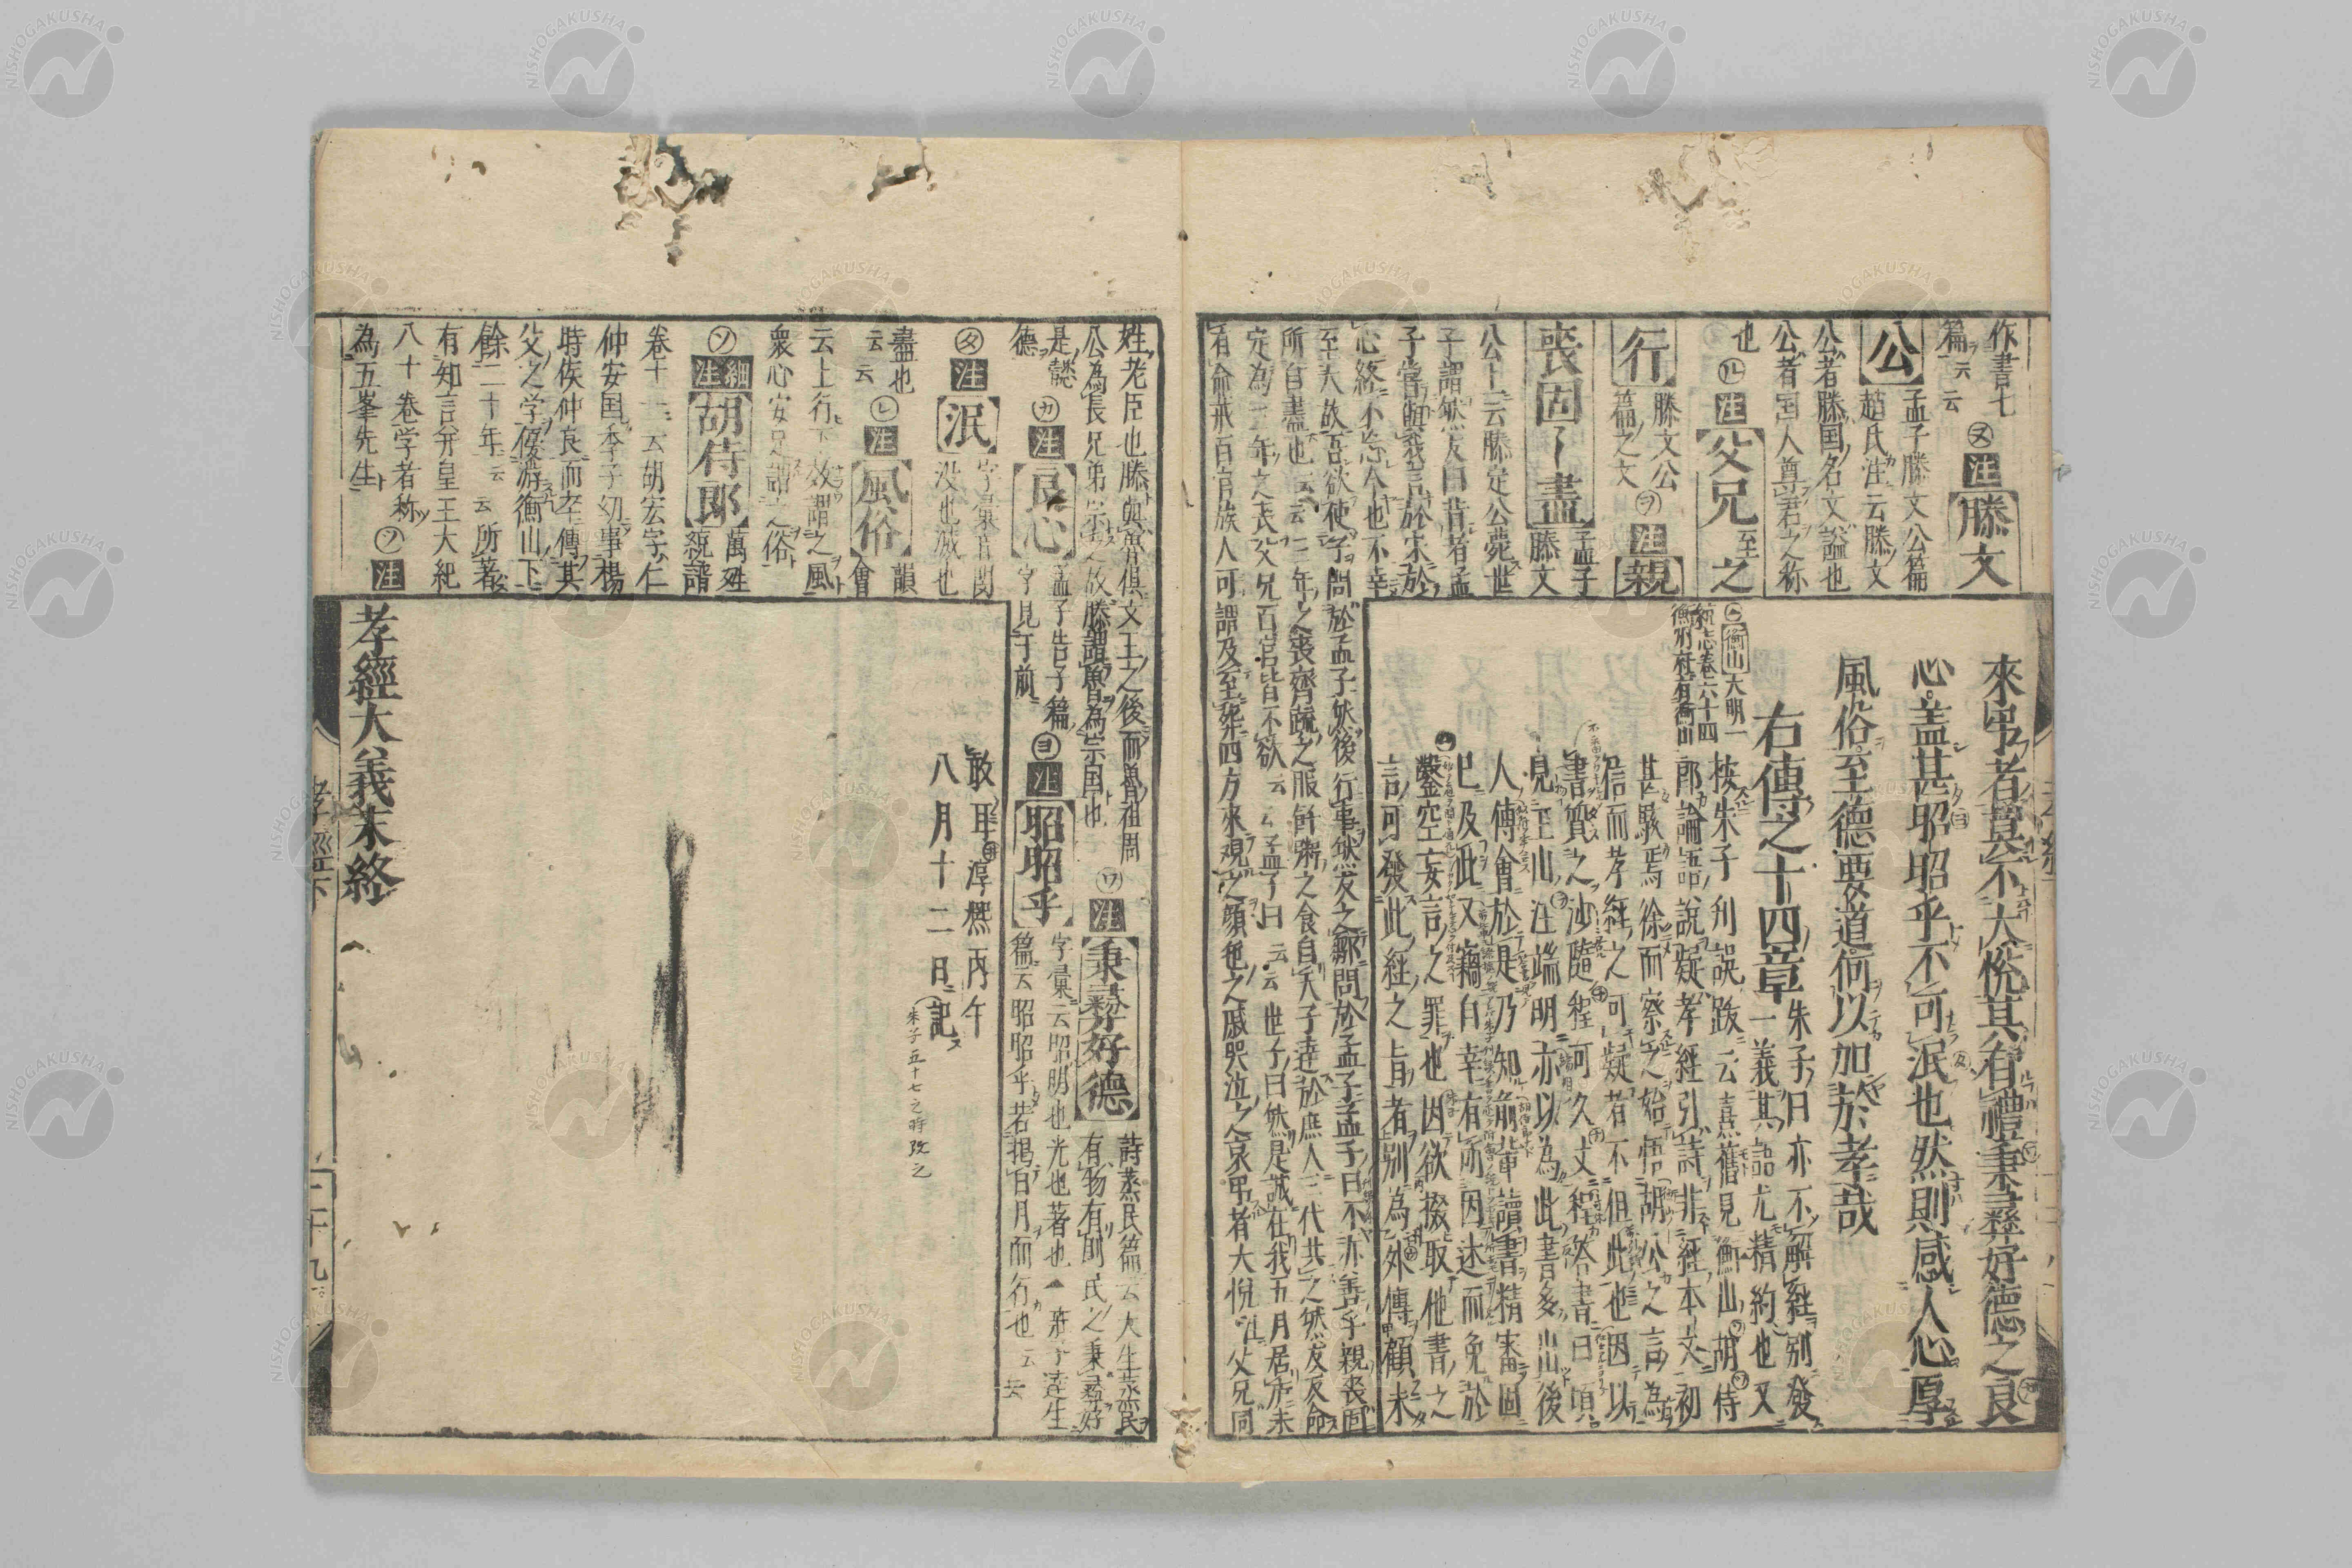 來吊者莫不大悅其有禮秉彛好德之良
心蓋甚昭昭乎不可泯也然則感人心厚
風俗至德要道何以加於孝哉
右傳之十四章
朱子曰亦不解經別發
一義其語尤精約也又
按朱子刋誤跋云熹舊見衡山胡侍
郎論語說疑孝經引詩非經本文初
甚駭焉徐而察之始悟胡公之言為
信而孝經之可疑者不但此也因以
書質之沙隨程可久丈程答書曰頃
見玉山汪端明亦以為此書多出後
人傳會於是乃知前輩讀書精審固
已及此又竊自幸有所因述而免於
鑿空妄言之罪也因欲掇取他書之
言可發此經之旨者別為外傳顧未
敢耳淳熈丙午
八月十二日記
朱子五十七之時改之
孝經大義末終
作書七
篇云云
㋦注滕文
公
孟子滕文公篇
趙氏注云滕文
公者滕国名文謚也
公者国人尊君之称
也㋸注父兄至之
行
滕文公
篇之文
㋾注親
喪固ー盡
孟子
滕文
公上云滕定公薨世
子謂然友曰昔者孟
子嘗與我言於宋於
心終不忘今也不幸
至大故吾欲使子問於孟子然後行事然友之鄒問於孟子孟子曰不亦善乎親喪固
所自盡也云云三年之喪齊疏之服飦粥之食自天子達於庶人三代共之然友反命
定為三年之喪父兄百官皆不欲云云孟子曰云云世子曰然是誠在我五月居廬未
有命戒百官族人可謂及至葬四方來觀之顔色之戚哭泣之哀吊者大悅
姓老臣也滕與魯俱文王之後而魯祖周
公為長兄弟宗之故滕謂魯為宗国也
㋻注秉彛好德
詩蒸民篇云天生蒸民
有物有則民之秉彛好
是懿
德
㋕注良心
孟子告子篇
字見于前
㋵注昭昭乎
字彙云昭明也光也著也
篇云昭昭乎若掲日月而行也云云
㋟注泯
没也滅也
盡也
云云
㋹注風俗
韻
會
云上行下效謂之風
衆心安定謂之俗
㋞細注胡侍郎
萬姓
統譜
卷十一云胡宏字仁
仲安国季子幼事楊
時侯仲良而卒傳其
父之学優游衡山下
餘二十年云云所著
有知言并皇王大紀
八十卷学者称
為五峯先生
㋡注
㊁衡山大明一
統志卷六十四
衡州府有衡山
孝經下
二十九